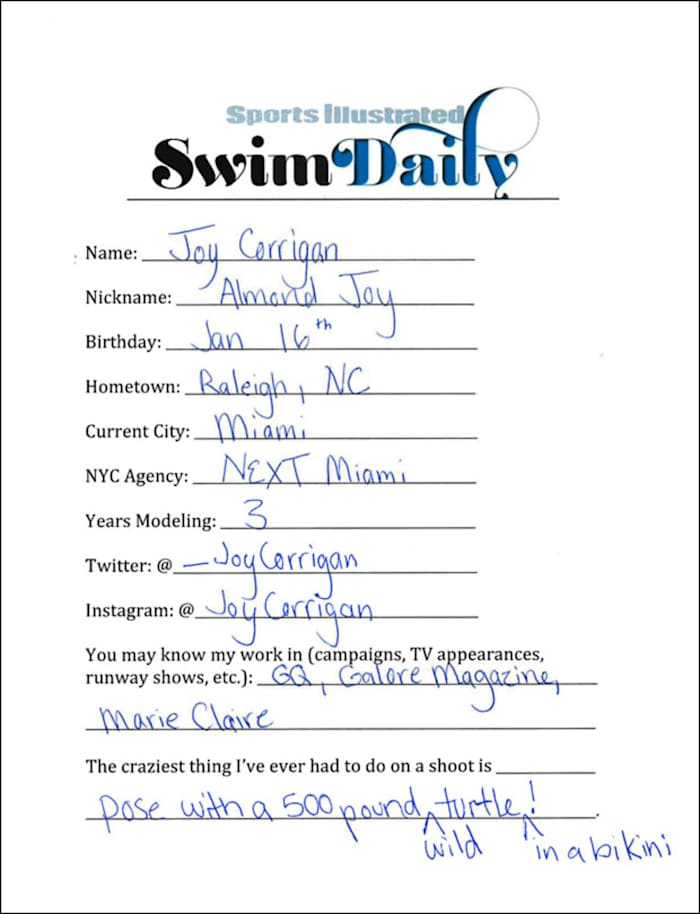 Sports Illustrated
Swim Daily
Name: Joy Corrigan
Nickname: Almond Joy
Birthday: Jan 16th
Hometown: Raleigh, NC
Current City: Miami
NYC Agency: NEXT Miami
Years Modeling: 3
Twitter: @ _JoyCorrigan
Instagram: @ JoyCorrigan
You may know my work in (campaigns, TV appearances,
runway shows, etc.): GQ, Galore Magazine,
Marie Claire
The craziest thing I've ever had to do on a shoot is
pose with a 500 pound ^ turtle ^!
wild in a bikini